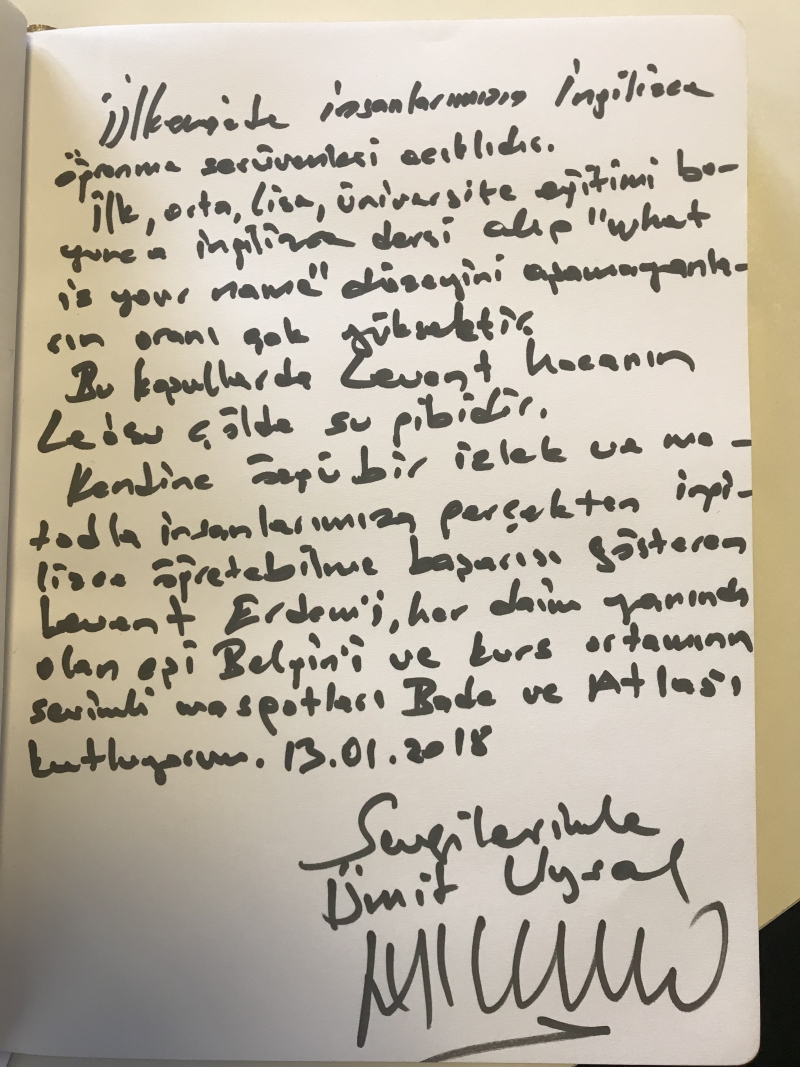 Ülkemizde insanlarımızın İngilizce
öğrenme serüvenleri acıklıdır.
İlk, orta, lise, üniversite eğitimi bo-
yunca ingilizce dersi alıp "what
is your name" düzeyini aşamayanla-
rın oranı çok yüksektir.
Bu koşullarda Levent hocanın
Leösu çölde su gibidir.
Kendine özgü bir izlek ve me-
todla insanlarımıza gerçekten ingi-
lizce öğretebilme başarısı gösteren
Levent Erdem'i, her daim yanında
olan eşi Belgin'i ve kurs ortamının
sevimli maspotları Bade ve Atlas'ı
kutluyorum. 13.01.2018
Sevgilerimle
Ümit Uysal